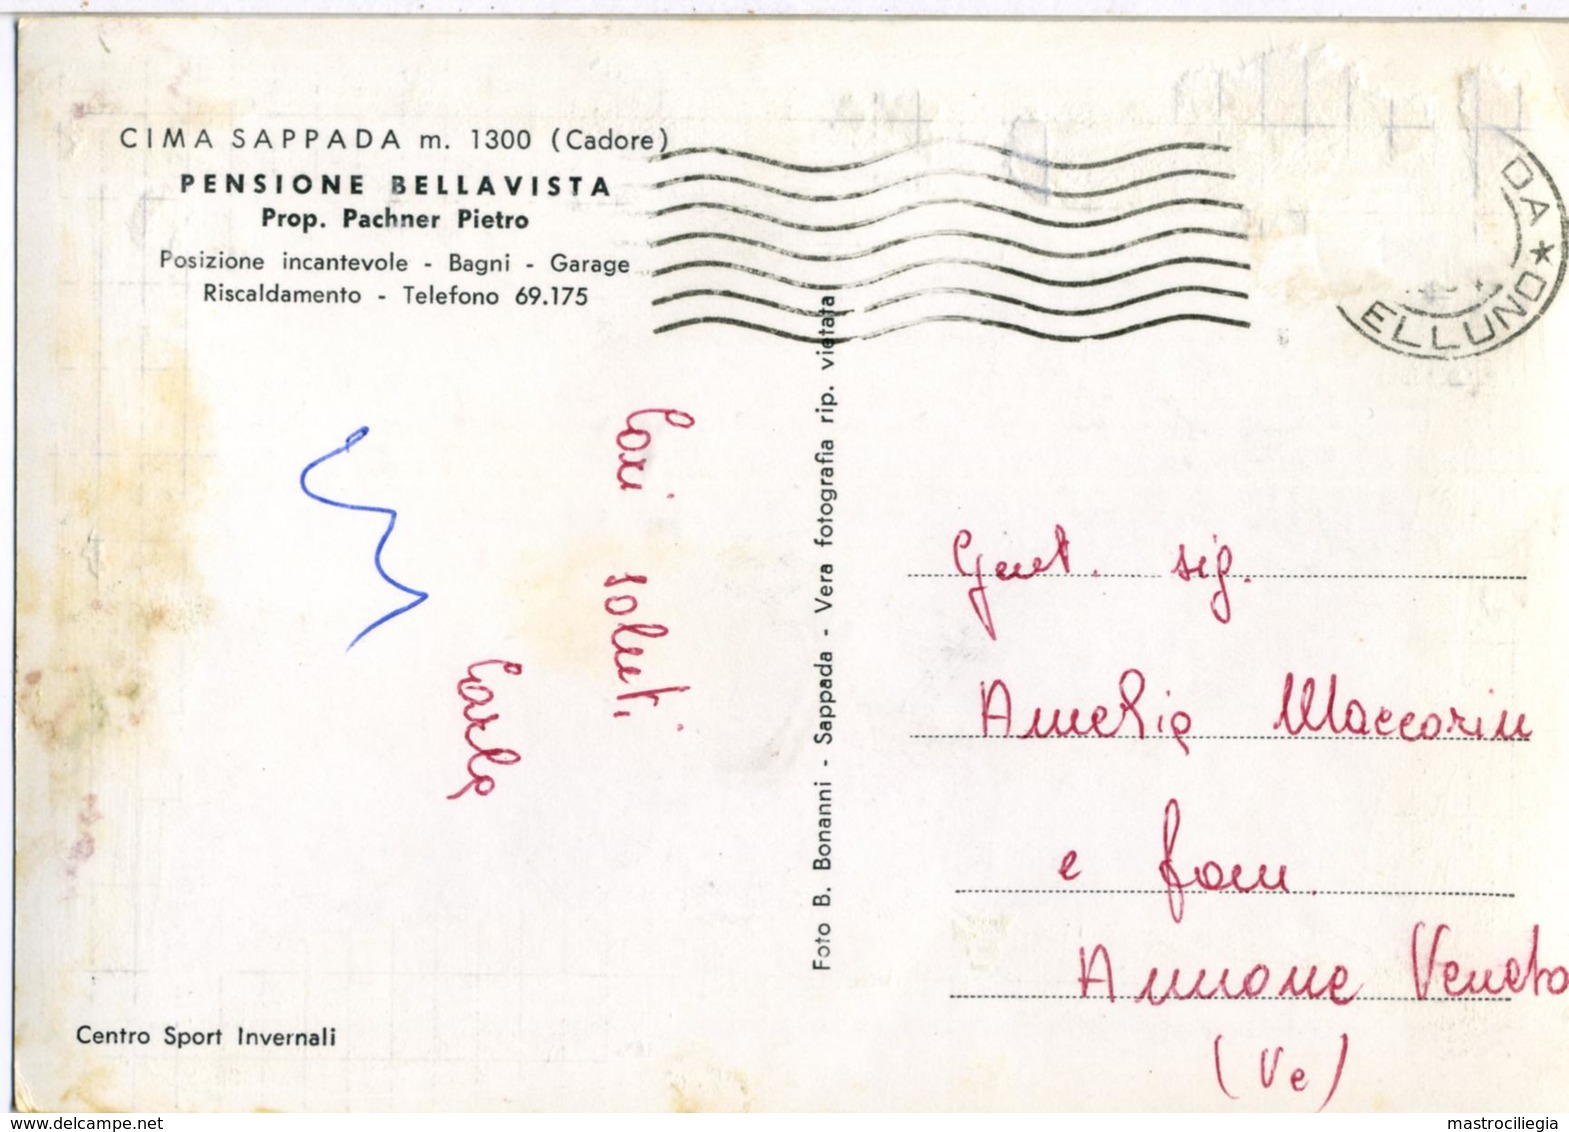 CIMA SAPPADA m. 1300 (Cadore)
PENSIONE BELLAVISTA
Prop. Pachner Pietro
Posizione incantevole - Bagni - Garage
Riscaldamento - Telefono 69.175
DA ★
ELLUNO
Cari saluti
Carla
Foto B. Bonanni - Sappada - Vera fotografia rip. vietata
Gent. sig.
Amelia Maccorin
e fam.
Annone Veneto
(Ve)
Centro Sport Invernali
www.delcampe.net
mastrociliegia